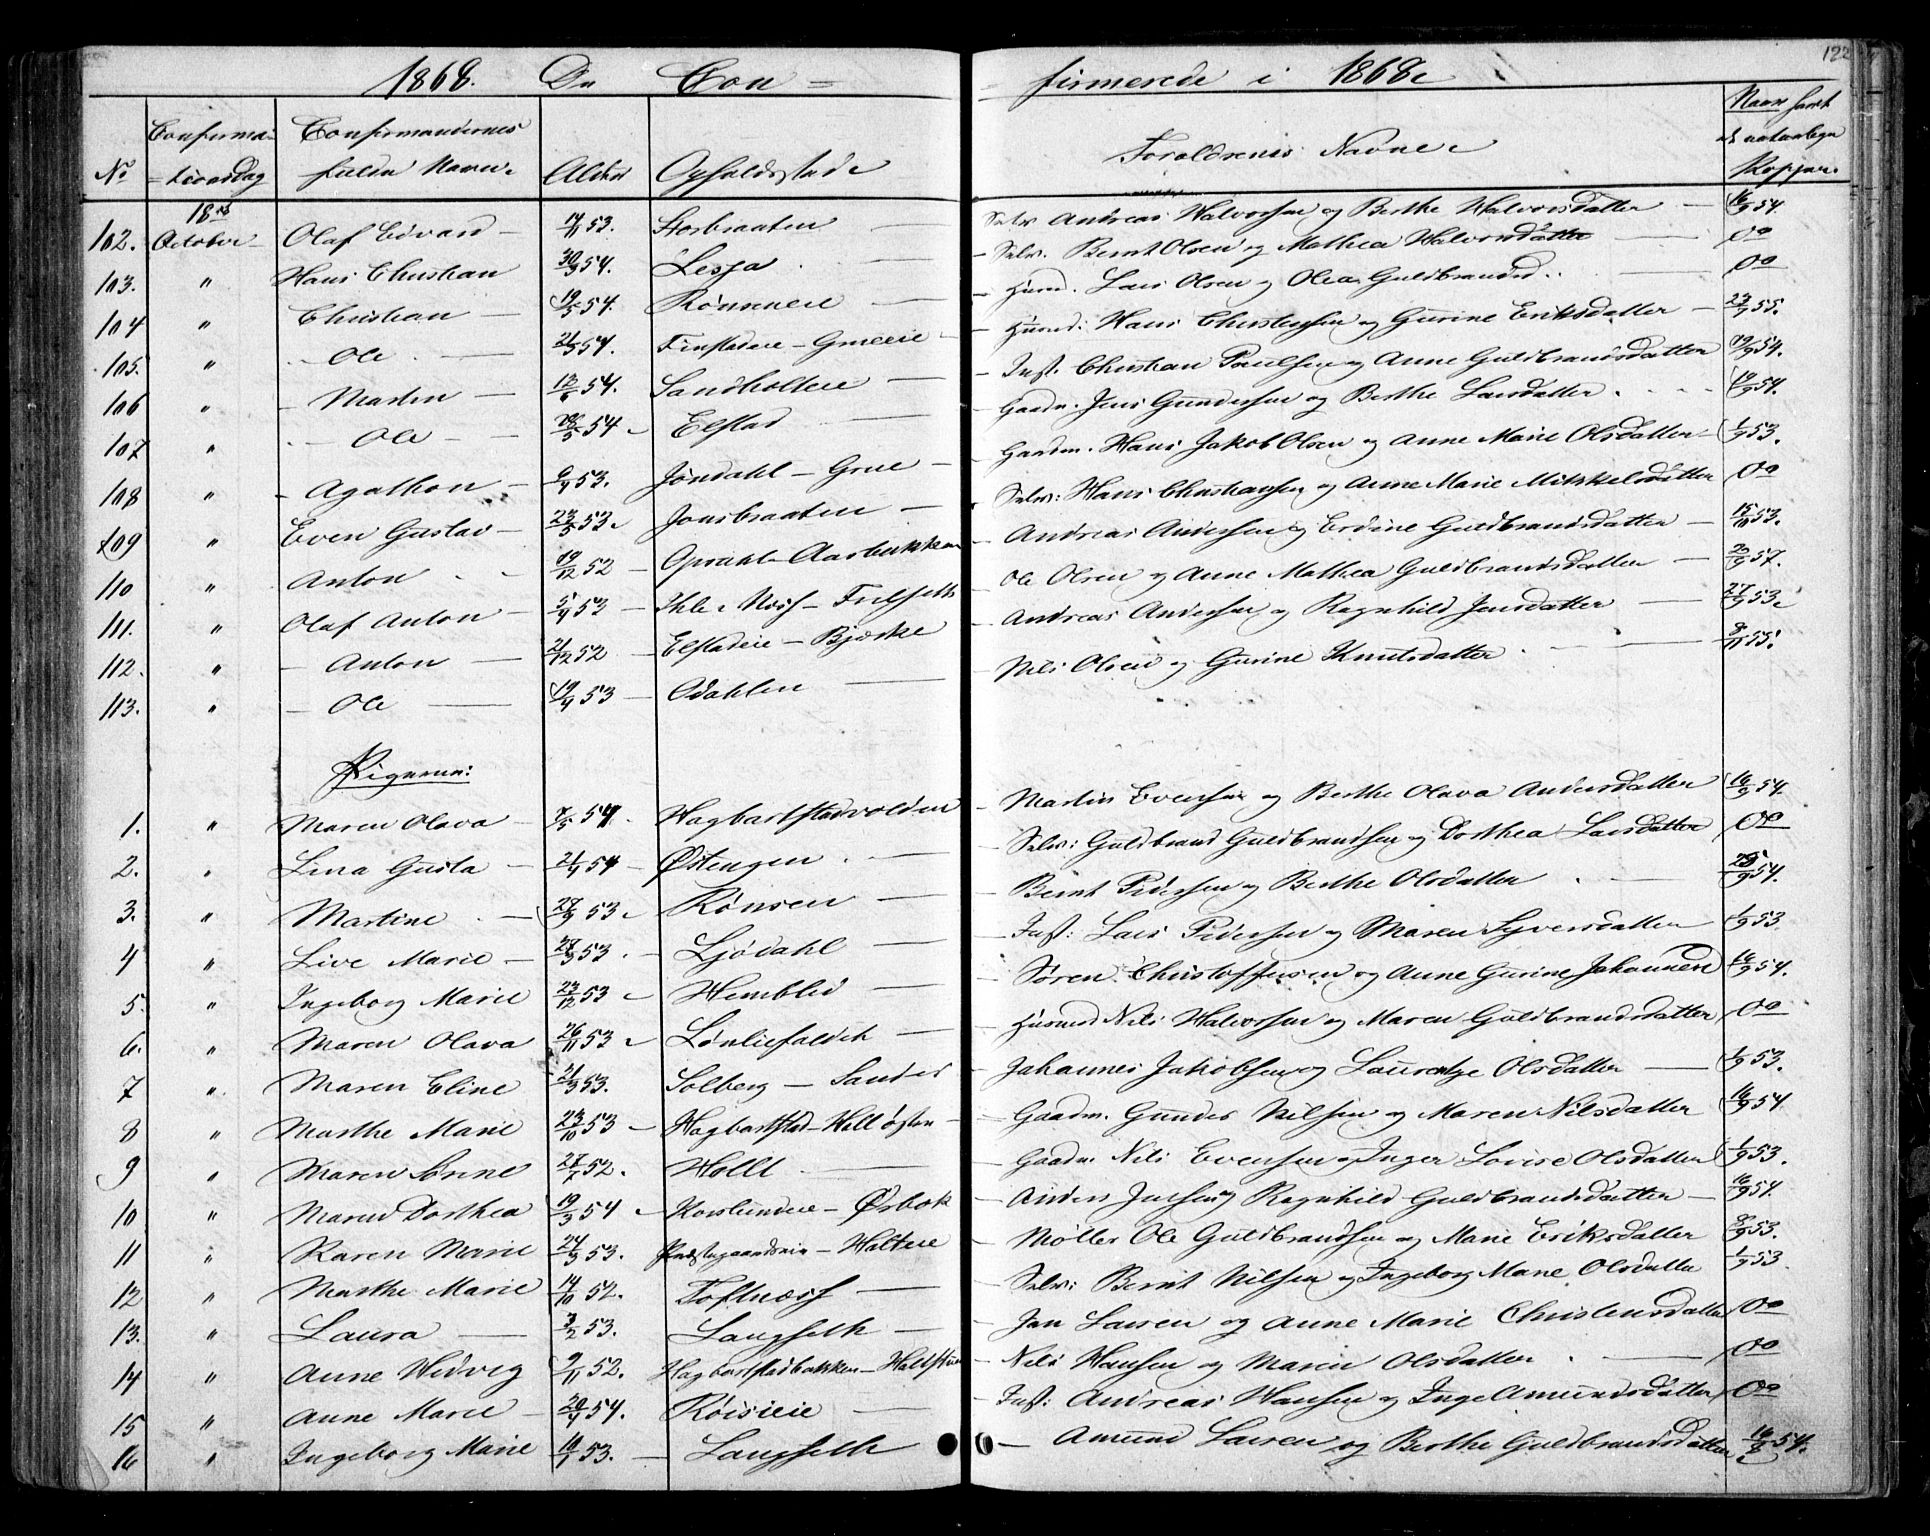 122
1868. De Con =
= firmerede i 1868
No
Confirma-
= tionsdag
Confirmandernes
fulde Navn.
Alder
Opholdssted
Forældrenes Navne
Naar samt
Kopper.
18de
102. October Olaf Edvard 14/11 53. Storbraaten — Selv. Andreas Halvorsen og Berthe Halvorsdatter — 16/9 54.
103. " Hans Christian 30/9 54. Lesja — Selv. Bernt Olsen og Mathea Halvorsdatter — 00
104 " Christian — 19/5 54. Rønsneie — Husmd. Lars Olsen og Olea Guldbrandsd. 00
105. " Ole — 21/5 54. Finstadeie — Grueeie — Husmd: Hans Christensen og Gurine Eriksdatter — 23/9 55.
106 " Martin — 12/6 54. Sandholteie — Inst. Christian Poulsen og Anne Guldbrandsdatter 19/9 54.
107 " Ole — 28/5 54 Elstad — Gaardm. Jens Gundersen og Berthe Larsdatter 16/9 54.
108 " Agathon — 6/4 53. Jøndahl — Grue — Gaardm. Hans Jakob Olsen og Anne Marie Olsdatter 1/9 53.
109 " Even Gustav — 23/5 53. Jonsbraaten — Selv: Hans Christiansen og Anne Marie Mikkelsdatter 00
110 " Anton 19/12 52 — Opsahl — Aasbukken Andreas Andersen og Erdine Guldbrandsdatter — 15/10 53.
111. " Olaf Anton — 5/4 53 — Ihle — Fulseth Ole Olsen og Anne Mathea Guldbrandsdatter — 20/9 57.
112. " Anton — 21/12 52 — Elstadeie — Bjørke Andreas Andersen og Ragnhild Jensdatter — 27/9 53.
113. " Ole — 19/4 53 — Odahlen — Nils Olsen og Gurine Knutsdatter — 8/11 55.
Pigerne:
1. " Maren Olava — 7/5 54. Hagbartstadvolden — Martin Evensen og Berthe Olava Andersdatter 16/9 54.
2. " Lina Gusta — 21/4 54 — Østengen — Selv: Guldbrand Guldbrandsen og Dorthea Larsdatter 00
3. " Martine — 28/9 53. Rønsen — Bernt Pedersen og Berthe Olsdatter — 25/9 54.
4 " Live Marie — 28/3 53. Ljødahl — Inst: Lars Pedersen og Maren Syversdatter — 1/9 53
5. " Ingeborg Marie 23/12 53 Hemblid — Søren Christoffersen og Anne Gurine Johannesd 16/9 54.
6. " Maren Olava 26/11 53 Lønliefaldet — Husmd Nils Halvorsen og Maren Guldbrandsdatter 00
7 " Maren Eline 21/3 53. Solberg — Sander Johannes Jakobsen og Laurentze Olsdatter — 1/9 53.
8 " Marthe Marie 23/10 53 — Hagbartstad — Gaardm. Gunder Nilsen og Maren Nilsdatter 16/9 54
9 " Maren 28/7 52. Holt — Gaardm. Nils Evensen og Inger Lovise Olsdatter 1/9 53.
10 " Maren Dorthea 19/3 54 Korslundeie — Ørbek Anders Jensen og Ragnhild Guldbrandsdatter — 16/9 54.
11 " Karen Marie 24/3 53. Præstegaardseie — Holteie Møller Ole Guldbrandsen og Marie Eriksdatter 8/9 53.
12 " Marthe Marie 14/10 52. Toftnæss — Selv: Bernt Nilsen og Ingeborg Marie Olsdatter 1/9 53.
13. " Laura — 3/2 53. Langseth — Jan Larsen og Anne Marie Christensdatter 00
14 " Anne Hedvig 9/11 52. Hagbartstadbakken — Nils Hansen og Maren Olsdatter — 00
15 " Anne Marie — 20/4 54. Røisieie — Inst: Andreas Hansen og Inger Amundsdatter 00
16 " Ingeborg Marie 10/1 53. — Langseth — Amund Larsen og Berthe Guldbrandsdatter 16/8 54.